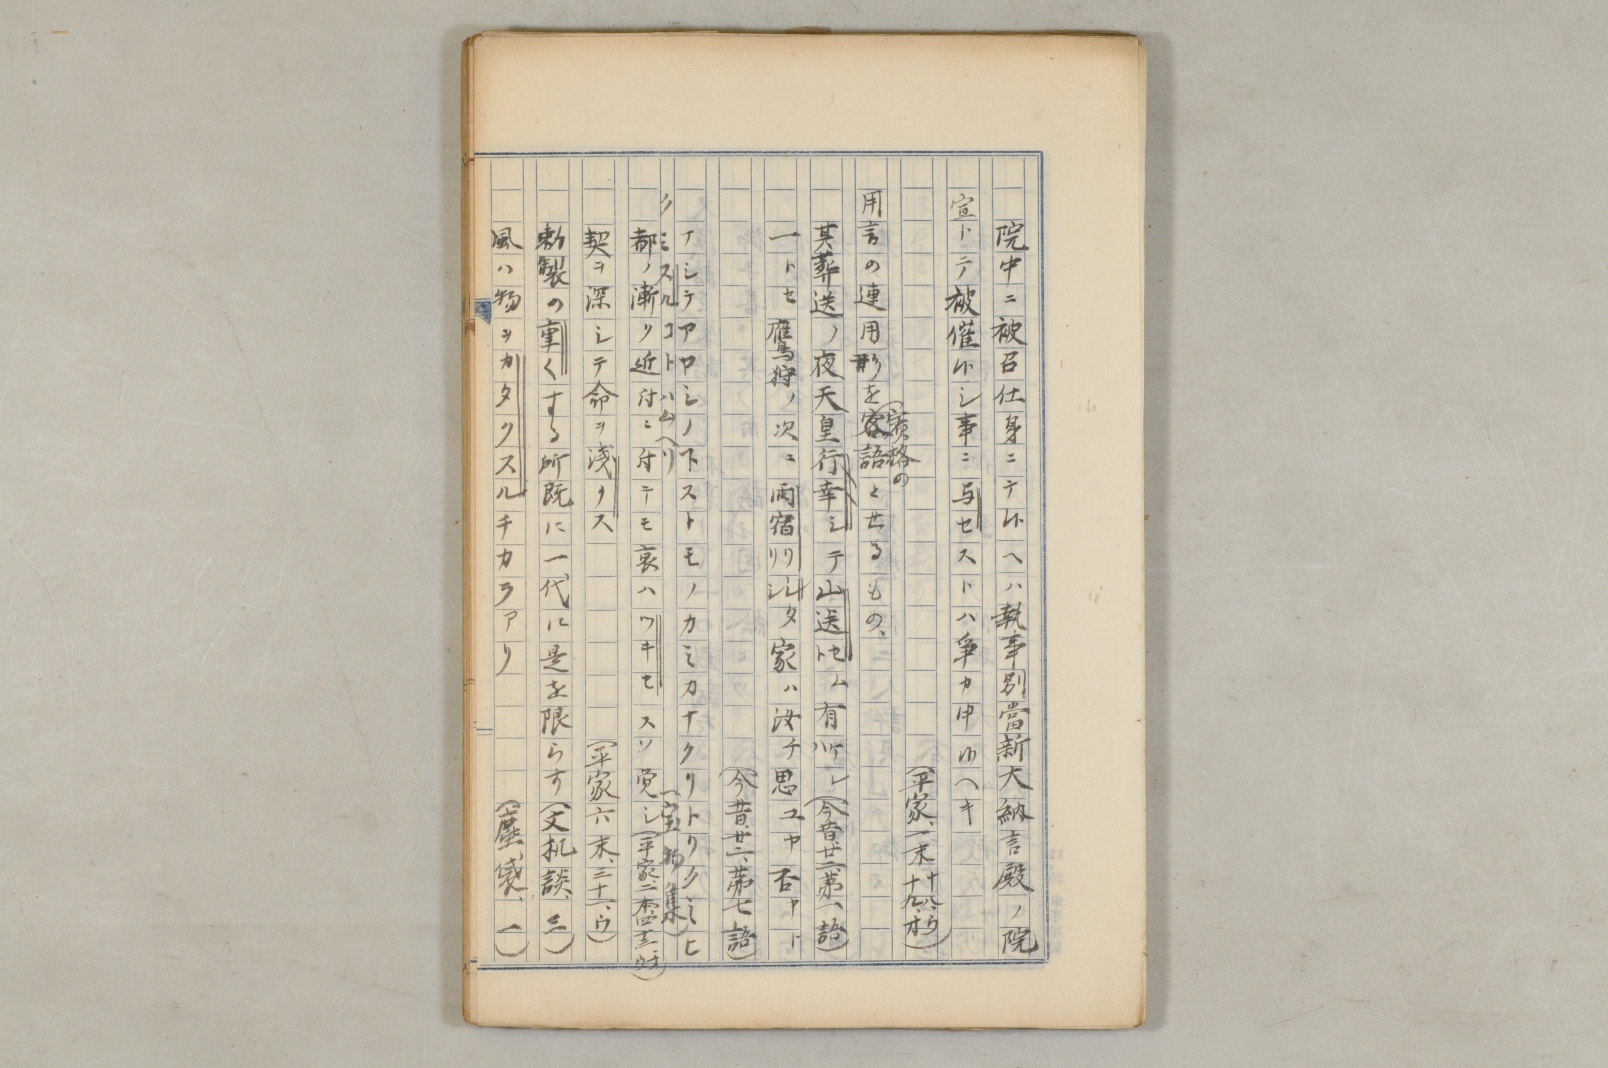 院中ニ被召仕身ニテ候ヘハ執事別當新大納言殿ノ院
宣トテ被催候シ事ニ与セストハ争カ申候ヘキ
(平家、一末、十八、ウ、十九、オ)
用言の連用形を(賓格の)客語とせるもの、
其葬送ノ夜天皇行幸シテ山送セム有ケレ(今昔廿二第一語)
一トセ鷹狩ノ次ニ雨宿リシタ家ハ汝チ思ユヤ否ヤト
(今昔、廿二、第七語)
イシテアヤシノ下ストモノカミカナクリトリクミヒ
クミスルコトハムヘリ(宝物集)
都ノ漸ク近付ニ付テモ哀ハツキセスソ覚シ(平家二本
契ヲ深シテ命ヲ浅クス(平家六末、三十一、ウ)
勅製の重くする所既に一代に是を限らす(文机談、三)
風ハ物ヲカタクスルチカラアリ(塵袋、一)